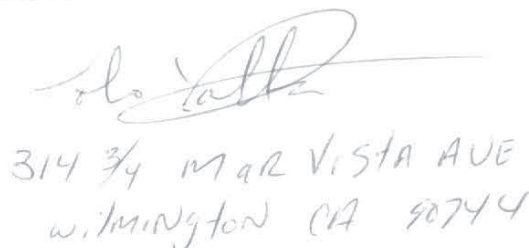 314 3/4 MAR VISTA AVE
WILMINGTON CA 90744